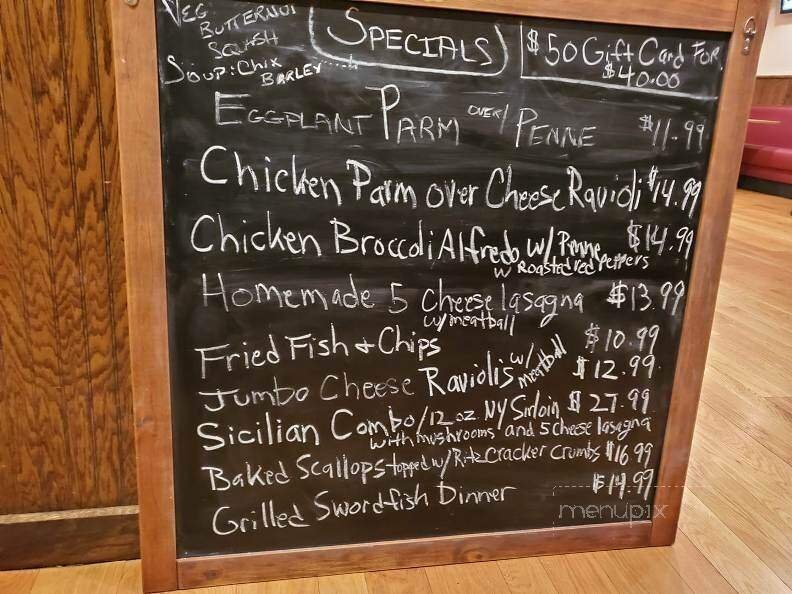 VEG
BUTTERNUT
SQUASH
SOUP: CHIX
BARLEY
SPECIALS
$50 Gift Card FOR
$40.00
EGGPLANT PARM OVER PENNE $11.99
Chicken Parm over Cheese Ravioli $14.99
Chicken Broccoli Alfredo w/ Penne $14.99
w/ Roasted red peppers
Homemade 5 Cheese lasagna $13.99
w/ meatball
Fried Fish + Chips $10.99
Jumbo Cheese Raviolis w/ meatball $12.99
Sicilian Combo/12 oz NY Sirloin $27.99
with mushrooms and 5 cheese lasagna
Baked Scallops topped w/ Ritz Cracker Crumbs $16.99
Grilled Swordfish Dinner $14.99
menupix